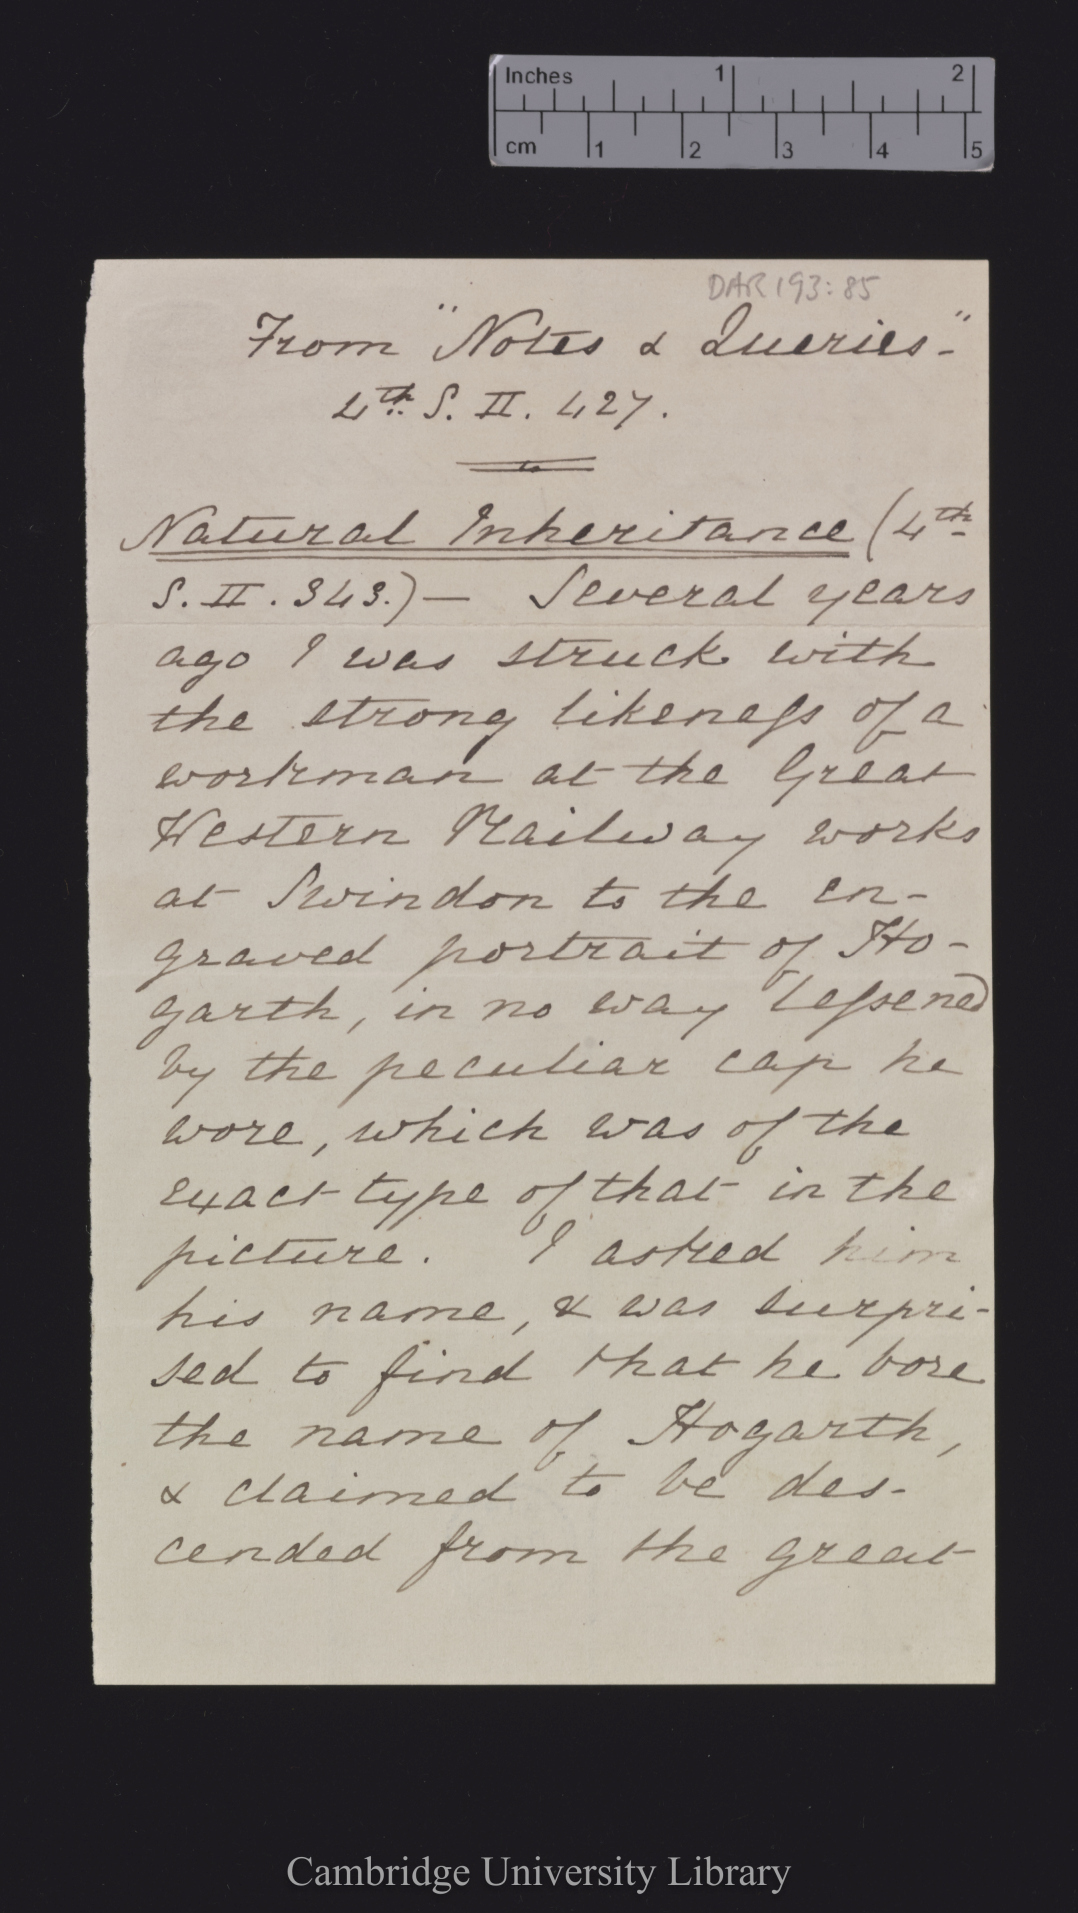 Inches 1 2
cm 1 2 3 4 5
DAR 193:85
From "Notes & Queries"-
4th. S. II. 427.
Natural Inheritance (4th
S. II. 343.) — Several years
ago I was struck with
the strong likeness of a
workman at the Great
Western Railway works
at Swindon to the en-
graved portrait of Ho-
garth, in no way lessened
by the peculiar cap he
wore, which was of the
exact type of that in the
picture. I asked him
his name, & was surpri-
sed to find that he bore
the name of Hogarth,
& claimed to be des-
cended from the great
Cambridge University Library